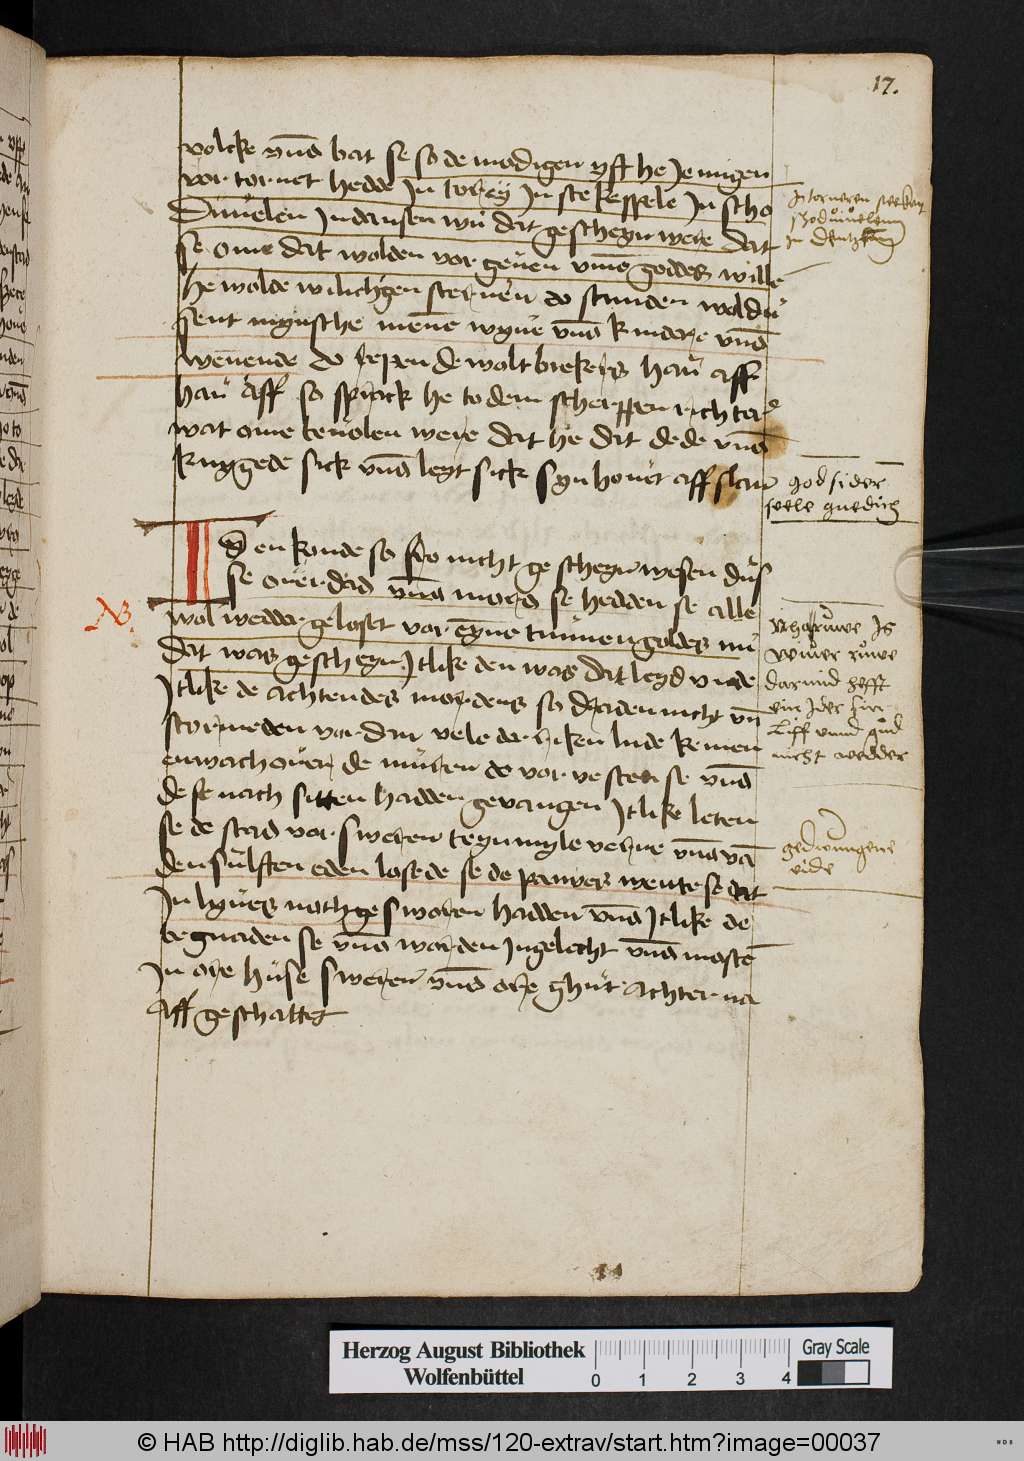 17.
volcke vnd bat se so demodigen yfft he Jemigen
vortornet hedde Jn torney Jn stekespele Jn scho
Duuelen Jn dansen wu dat geschegn were dat
se ome dat wolden vorgeuen vmme goddes wille
he wolde willichgen steruen do stunden wol du
sent mynsche menne wyue vnd kindere vnd
weneende do repen de woltbrekers hau aff
hau aff so sprack he to dem scherppen richter
wat ome beuolen were dat he dat dede vnd
knygede sick vnd leyt sick syn houet aff slan
god si der
seele gnedich
Den konde so fro nicht geschegn wesen dus
se ouerdad vnd mord se hedden se alle
wol wedder geloset vor eyne tunnen goldes nu
dat was geschegn Jtlike den was dat leyd vnde
Jtlike de achtendes mordens so Draden nicht vn
stormeden vordan vele der riken lude kemen
enwach ouer de muren do vorvesteden se vnd
de se nach sitten hadden gevangen Jtlike leten
se de stad vorsweren teyn myle verne vnd van
den suluften eden losede se de pawes wente se dat
Jn lyues noth gesworen hadden vnd Jtlike de
begnaden se vnd worden Jngelecht vnd mosten
Jn ore huse sweren vnd ore ghut achterna
aff geschattet
NB.
Nharuwe Js
Wiuer ruwe
darumb hefft
ein Jder sin
Liff vnnd gud
nicht wedder
gedwungene
eide
Herzog August Bibliothek
Wolfenbüttel
0 1 2 3 4
Gray Scale
© HAB http://diglib.hab.de/mss/120-extrav/start.htm?image=00037